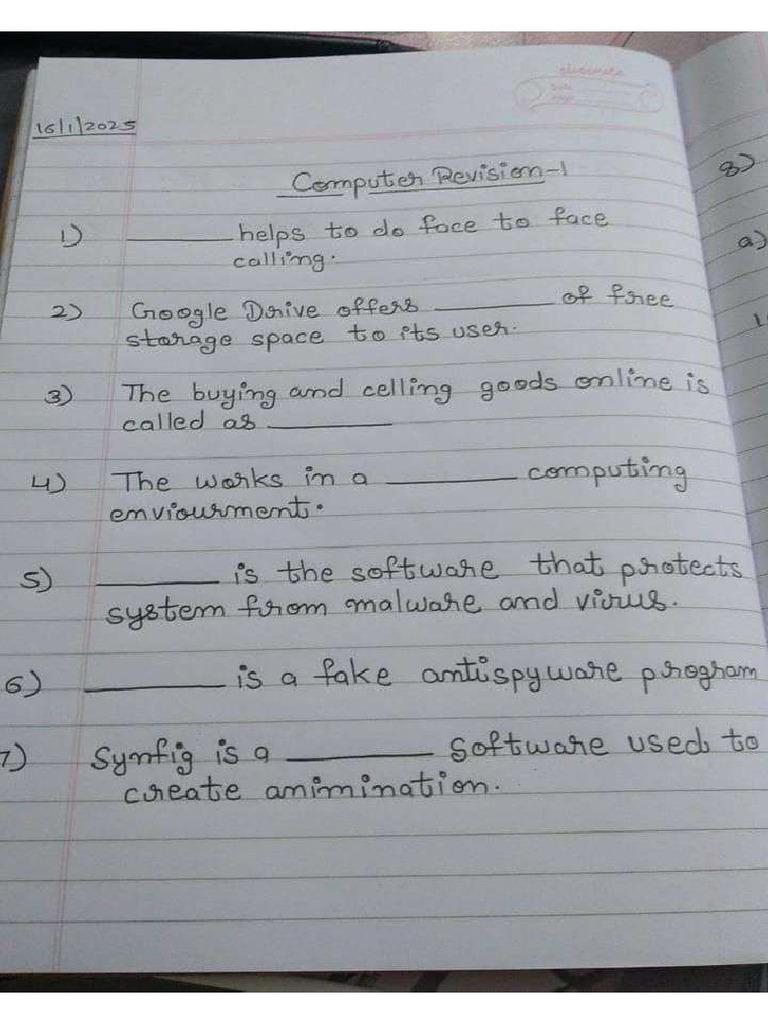 classmate
Date
Page
16/1/2025
Computer Revision-1
1) ________ helps to do face to face
calling.
2) Google Drive offers ________ of free
storage space to its user.
3) The buying and celling goods online is
called as ________
4) The works in a ________ computing
enviourment.
5) ________ is the software that protects
system from malware and virus.
6) ________ is a fake antispyware program
7) Synfig is a ________ software used to
create animination.
8)
a)